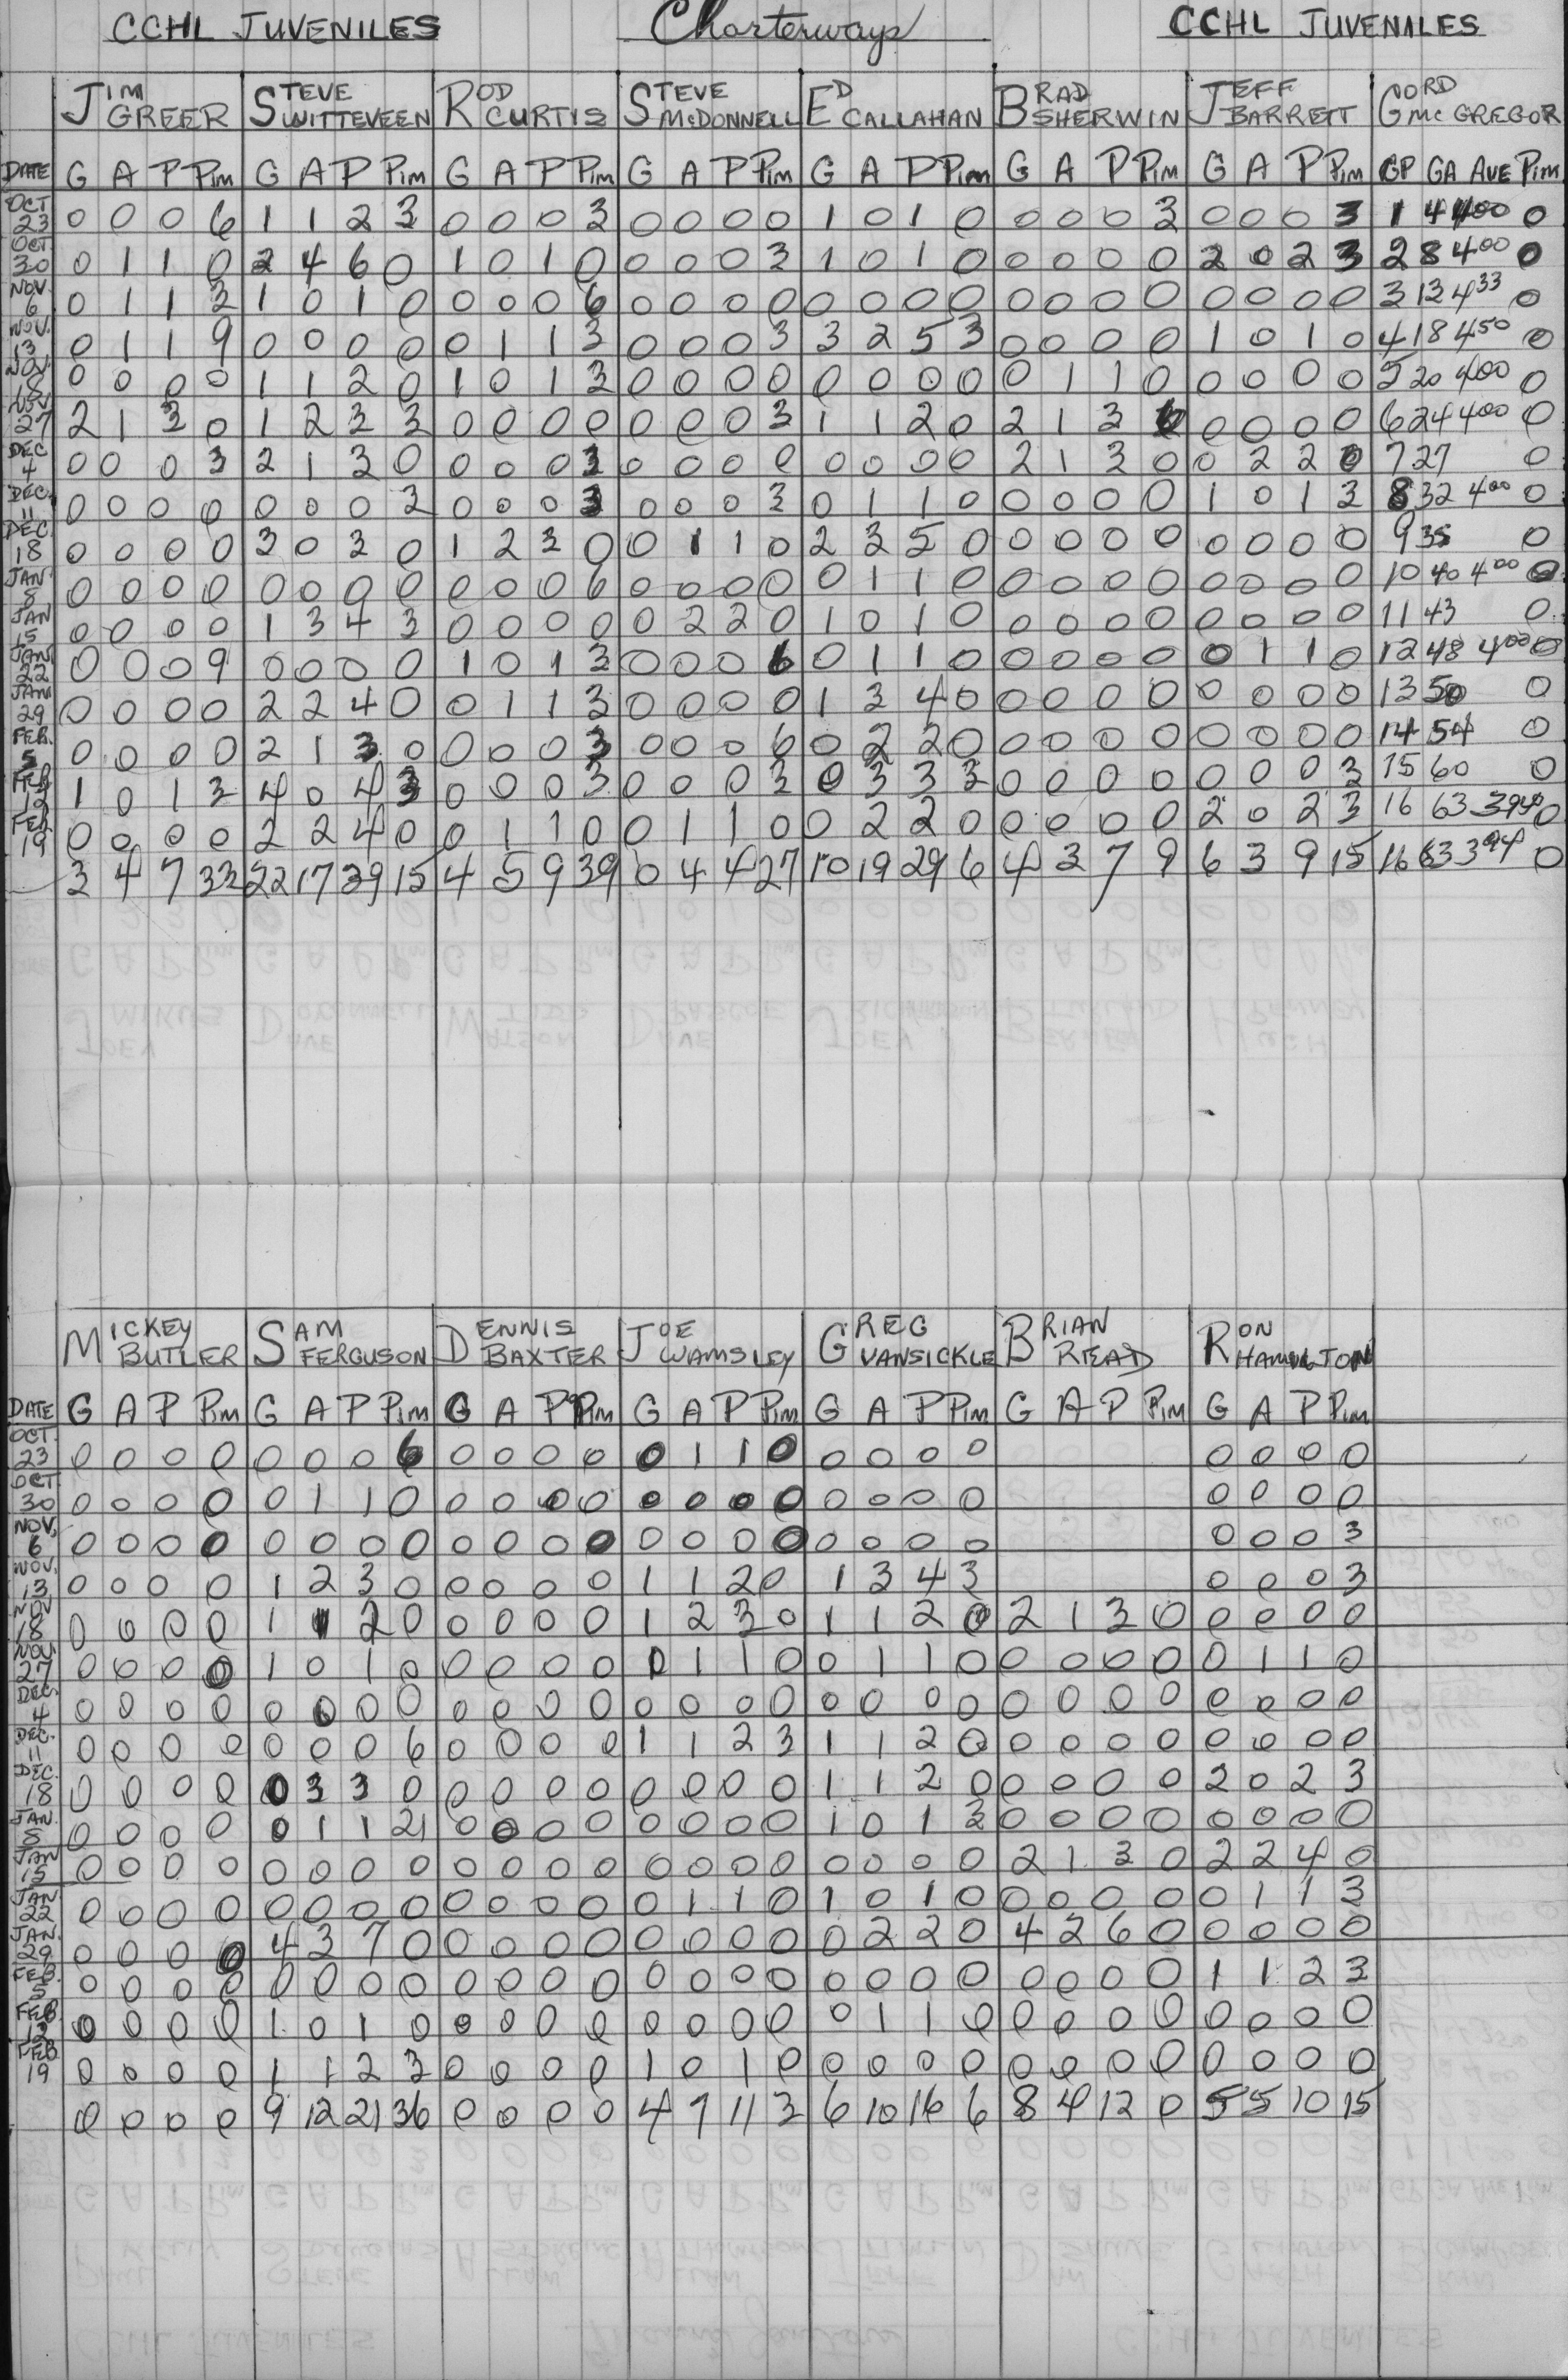 CCHL JUVENILES Charterways CCHL JUVENILES
JIM GREER STEVE WITTEVEEN ROD CURTIS STEVE McDONNELL ED CALLAHAN BRAD SHERWIN JEFF BARRETT GORD McGREGOR
DATE G A P Pim G A P Pim G A P Pim G A P Pim G A P Pim G A P Pim G A P Pim GP GA AVE Pim
OCT 23 0 0 0 6 1 1 2 3 0 0 0 3 0 0 0 0 1 0 1 0 0 0 0 3 0 0 0 3 1 4 400 0
OCT 30 0 1 1 0 2 4 6 0 1 0 1 0 0 0 0 3 1 0 1 0 0 0 0 0 2 0 2 3 2 8 400 0
NOV. 6 0 1 1 3 1 0 1 0 0 0 0 6 0 0 0 0 0 0 0 0 0 0 0 0 0 0 0 0 3 13 433 0
NOV. 13 0 1 1 9 0 0 0 0 0 1 1 3 0 0 0 3 3 2 5 3 0 0 0 0 1 0 1 0 4 18 450 0
NOV. 18 0 0 0 0 1 1 2 0 1 0 1 3 0 0 0 0 0 0 0 0 0 1 1 0 0 0 0 0 5 20 400 0
NOV 27 2 1 3 0 1 2 3 3 0 0 0 0 0 0 0 3 1 1 2 0 2 1 3 6 0 0 0 0 6 24 400 0
DEC 4 0 0 0 3 2 1 3 0 0 0 0 3 0 0 0 0 0 0 0 0 2 1 3 0 0 2 2 0 7 27 0
DEC. 11 0 0 0 0 0 0 0 3 0 0 0 3 0 0 0 3 0 1 1 0 0 0 0 0 1 0 1 3 8 32 400 0
DEC. 18 0 0 0 0 3 0 3 0 1 2 3 0 0 1 1 0 2 3 5 0 0 0 0 0 0 0 0 0 9 35 0
JAN 5 0 0 0 0 0 0 0 0 0 0 0 6 0 0 0 0 0 1 1 0 0 0 0 0 0 0 0 0 10 40 400 0
JAN 15 0 0 0 0 1 3 4 3 0 0 0 0 0 2 2 0 1 0 1 0 0 0 0 0 0 0 0 0 11 43 0
JAN 22 0 0 0 9 0 0 0 0 1 0 1 3 0 0 0 6 0 1 1 0 0 0 0 0 0 1 1 0 12 48 400 0
JAN 29 0 0 0 0 2 2 4 0 0 1 1 3 0 0 0 0 1 3 4 0 0 0 0 0 0 0 0 0 13 50 0
FEB. 5 0 0 0 0 2 1 3 0 0 0 0 3 0 0 0 6 0 2 2 0 0 0 0 0 0 0 0 0 14 54 0
FEB 12 1 0 1 3 4 0 4 3 0 0 0 3 0 0 0 3 0 3 3 3 0 0 0 0 0 0 0 3 15 60 0
FEB 19 0 0 0 0 2 2 4 0 0 1 1 0 0 1 1 0 0 2 2 0 0 0 0 0 2 0 2 3 16 63 394 0
3 4 7 33 22 17 39 15 4 5 9 39 0 4 4 27 10 19 29 6 4 3 7 9 6 3 9 15 16 63 394 0
MICKEY BUTLER SAM FERGUSON DENNIS BAXTER JOE WAMSLEY GREG VANSICKLE BRIAN READ RON HAMILTON
DATE G A P Pim G A P Pim G A P Pim G A P Pim G A P Pim G A P Pim G A P Pim
OCT. 23 0 0 0 0 0 0 0 6 0 0 0 0 0 1 1 0 0 0 0 0 0 0 0 0
OCT. 30 0 0 0 0 0 1 1 0 0 0 0 0 0 0 0 0 0 0 0 0 0 0 0 0
NOV. 6 0 0 0 0 0 0 0 0 0 0 0 0 0 0 0 0 0 0 0 0 0 0 0 3
NOV. 13 0 0 0 0 1 2 3 0 0 0 0 0 1 1 2 0 1 3 4 3 0 0 0 3
NOV 18 0 0 0 0 1 1 2 0 0 0 0 0 1 2 3 0 1 1 2 0 2 1 3 0 0 0 0 0
NOV. 27 0 0 0 0 1 0 1 0 0 0 0 0 0 1 1 0 0 1 1 0 0 0 0 0 0 1 1 0
DEC. 4 0 0 0 0 0 0 0 0 0 0 0 0 0 0 0 0 0 0 0 0 0 0 0 0 0 0 0 0
DEC. 11 0 0 0 0 0 0 0 6 0 0 0 0 1 1 2 3 1 1 2 0 0 0 0 0 0 0 0 0
DEC. 18 0 0 0 0 0 3 3 0 0 0 0 0 0 0 0 0 1 1 2 0 0 0 0 0 2 0 2 3
JAN. 5 0 0 0 0 0 1 1 21 0 0 0 0 0 0 0 0 1 0 1 3 0 0 0 0 0 0 0 0
JAN 15 0 0 0 0 0 0 0 0 0 0 0 0 0 0 0 0 0 0 0 0 2 1 3 0 2 2 4 0
JAN 22 0 0 0 0 0 0 0 0 0 0 0 0 0 1 1 0 1 0 1 0 0 0 0 0 0 1 1 3
JAN. 29 0 0 0 0 4 3 7 0 0 0 0 0 0 0 0 0 0 2 2 0 4 2 6 0 0 0 0 0
FEB. 5 0 0 0 0 0 0 0 0 0 0 0 0 0 0 0 0 0 0 0 0 0 0 0 0 1 1 2 3
FEB 12 0 0 0 0 1 0 1 0 0 0 0 0 0 0 0 0 0 1 1 0 0 0 0 0 0 0 0 0
FEB 19 0 0 0 0 1 1 2 3 0 0 0 0 1 0 1 0 0 0 0 0 0 0 0 0 0 0 0 0
0 0 0 0 9 12 21 36 0 0 0 0 4 7 11 3 6 10 16 6 8 4 12 0 5 5 10 15